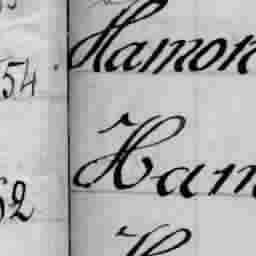 54 Hamon
62 Ham